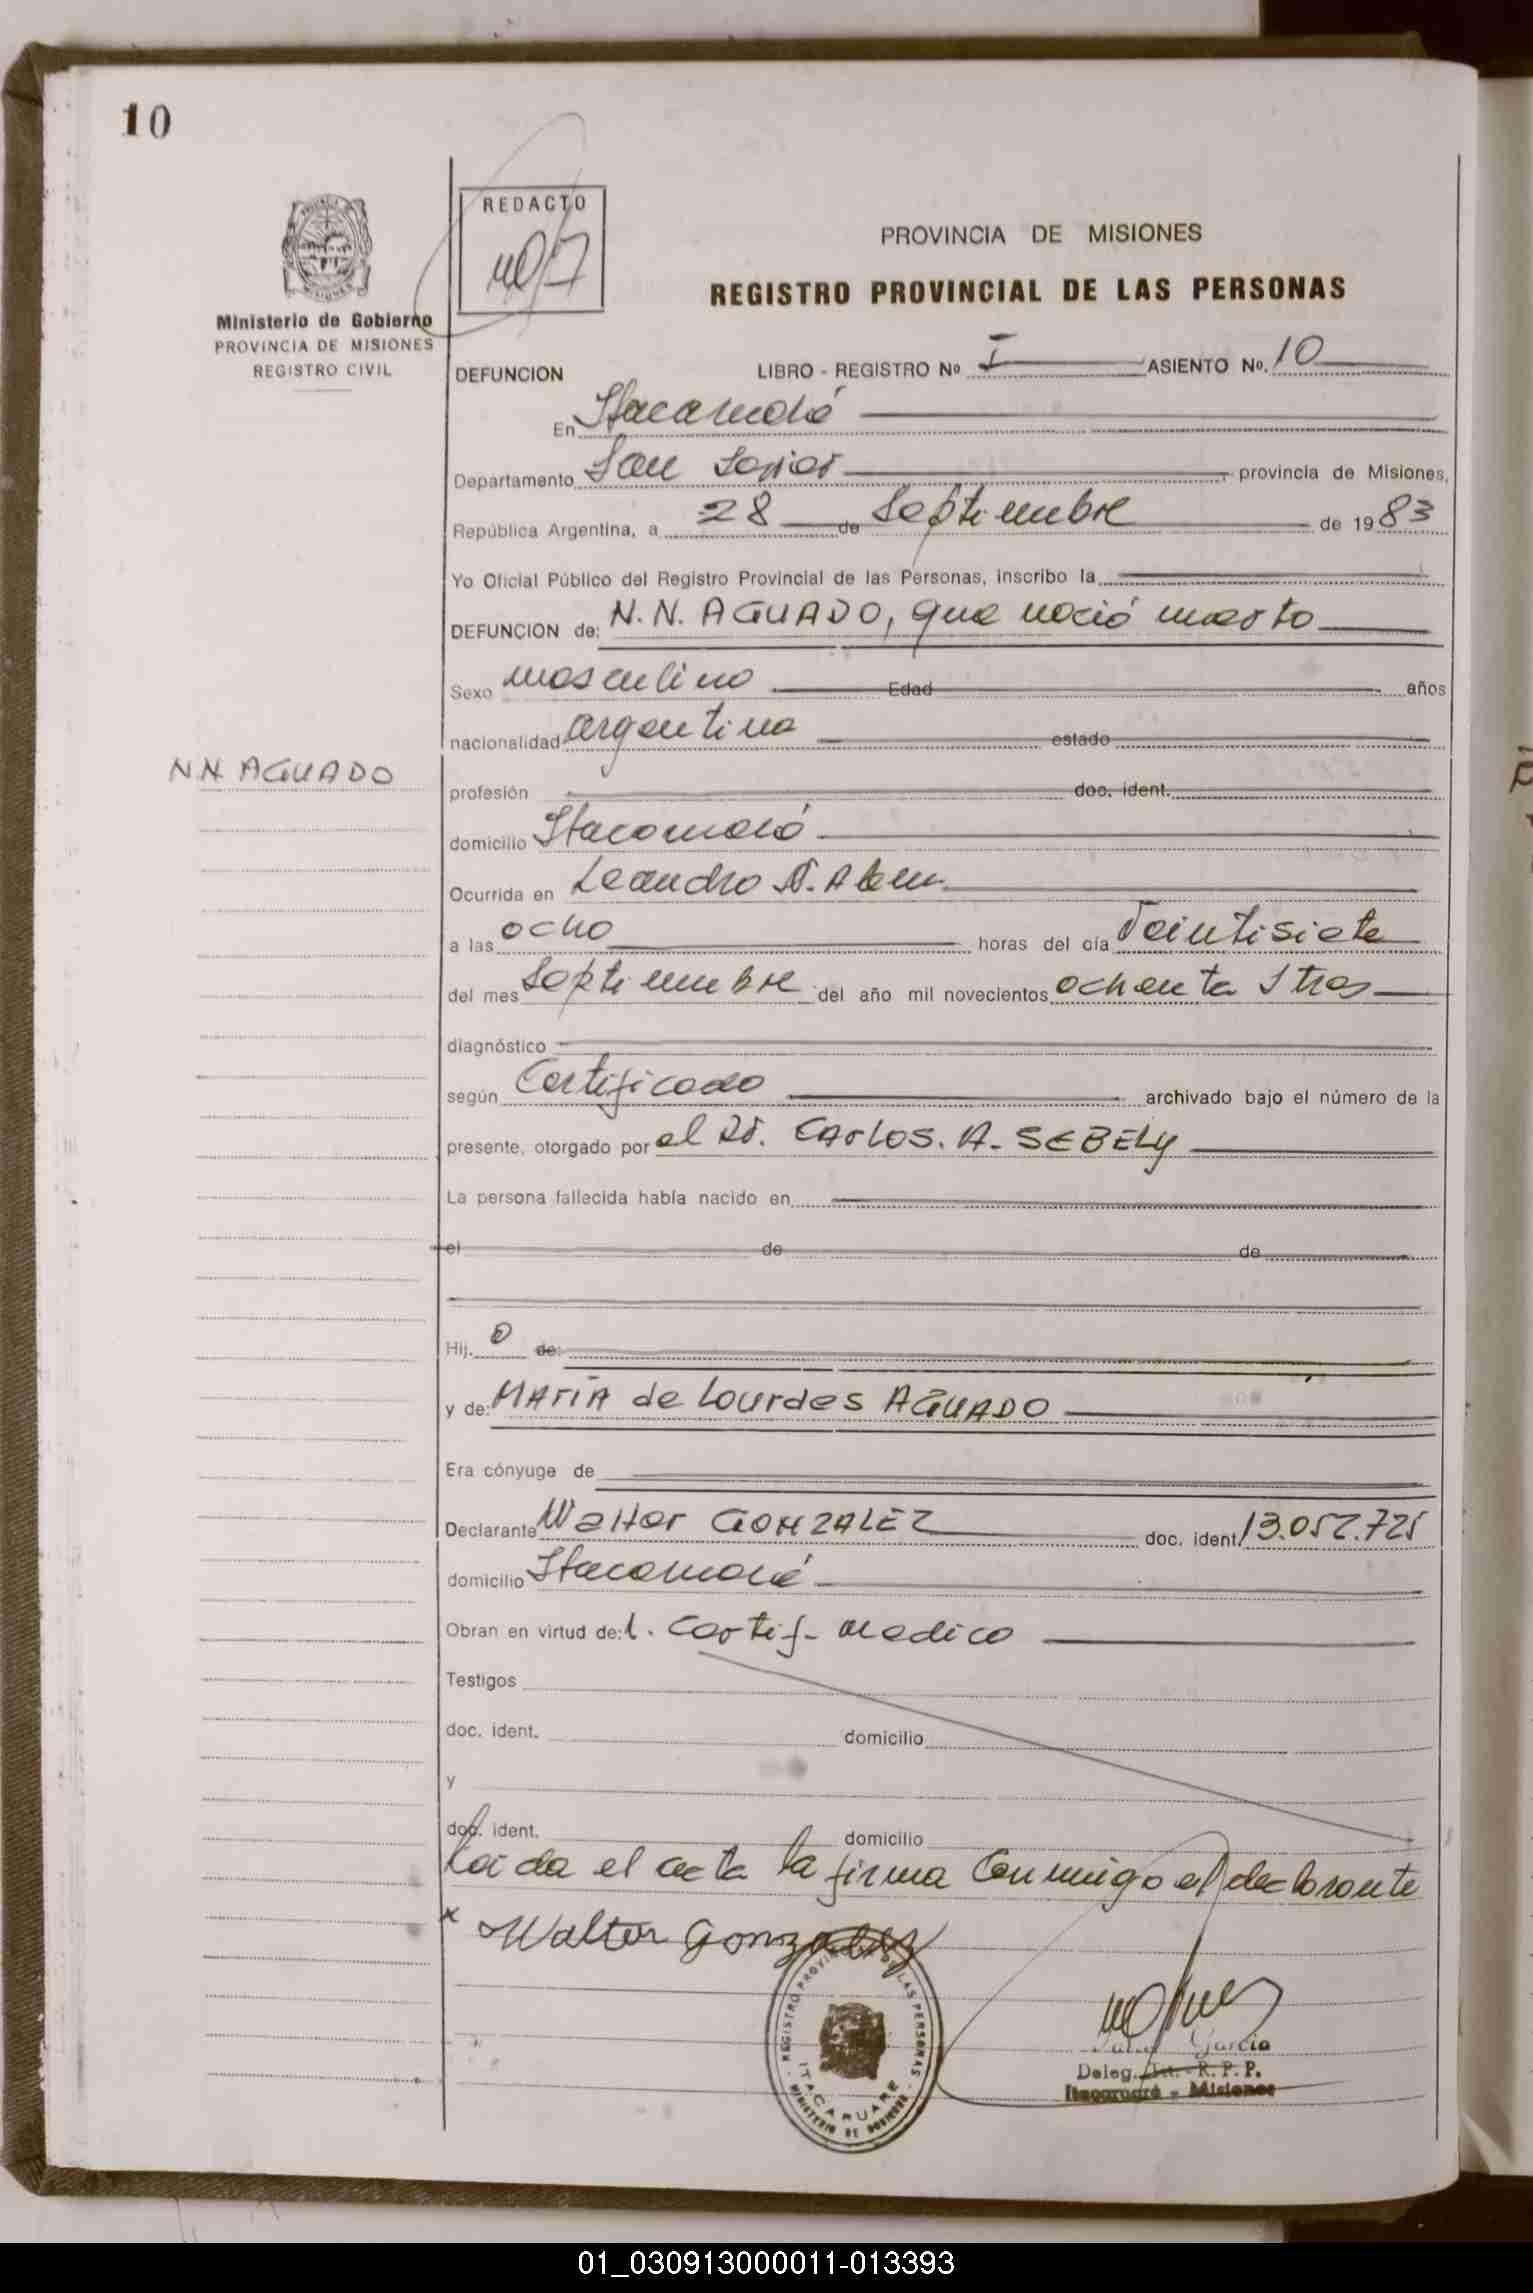 10
REDACTO
PROVINCIA DE MISIONES
REGISTRO PROVINCIAL DE LAS PERSONAS
Ministerio de Gobierno
PROVINCIA DE MISIONES
REGISTRO CIVIL
DEFUNCION LIBRO - REGISTRO Nº I ASIENTO Nº. 10
En Itacaruaré
Departamento San Javier provincia de Misiones,
República Argentina, a 28 de Septiembre de 1983
Yo Oficial Público del Registro Provincial de las Personas, inscribo la
DEFUNCION de: N.N. AGUADO, que nació muerto
Sexo masculino Edad años
nacionalidad argentina estado
N.N. AGUADO
profesión doc. ident.
domicilio Itacaruaré
Ocurrida en Leandro N. Alem
a las ocho horas del día Veintisiete
del mes Septiembre del año mil novecientos ochenta y tres
diagnóstico
según Certificado archivado bajo el número de la
presente, otorgado por el Dr. CARLOS. A. SEBELY
La persona fallecida había nacido en
el de de
Hij. o de:
y de: MARÍA de Lourdes AGUADO
Era cónyuge de
Declarante Walter GONZALEZ doc. ident. 13.052.725
domicilio Itacaruaré
Obran en virtud de: l. Certif. Medico
Testigos
doc. ident. domicilio
y
doc. ident. domicilio
Leida el acta la firma Conmigo el declarante
x Walter Gonzalez
REGISTRO PROVINCIAL DE LAS PERSONAS
ITACARUARE
MINISTERIO DE GOBIERNO
Garcia
Deleg. Int. R. P. P.
Itacaruaré - Misiones
01_030913000011-013393